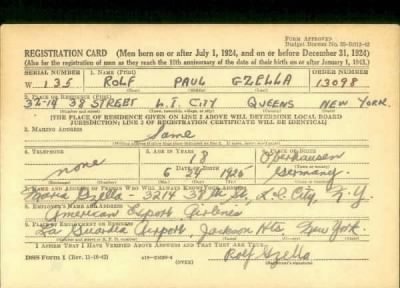 FORM APPROVED
REGISTRATION CARD (Men born on or after July 1, 1924, and on or before December 31, 1924)
(Also for the registration of men as they reach the 18th anniversary of the date of their birth on or after January 1, 1943.)
SERIAL NUMBER 1. NAME (Print) ORDER NUMBER
W 135 ROLF PAUL GZELLA 13098
(First) (Middle) (Last)
2. PLACE OF RESIDENCE (Print)
32-14 38 STREET L.I. CITY QUEENS NEW YORK.
[THE PLACE OF RESIDENCE GIVEN ON LINE 2 ABOVE WILL DETERMINE LOCAL BOARD
JURISDICTION; LINE 2 OF REGISTRATION CERTIFICATE WILL BE IDENTICAL]
3. MAILING ADDRESS
Same
4. TELEPHONE 5. AGE IN YEARS 6. PLACE OF BIRTH
18 Oberhausen
DATE OF BIRTH
none 6 24 1925 Germany.
7. NAME AND ADDRESS OF PERSON WHO WILL ALWAYS KNOW YOUR ADDRESS
Maria Gzella - 3214 38th St. L.I. City, N.Y.
8. EMPLOYER'S NAME AND ADDRESS
American Export Airlines
9. PLACE OF EMPLOYMENT OR BUSINESS
La Guardia Airport, Jackson Hts. New York.
I AFFIRM THAT I HAVE VERIFIED ABOVE ANSWERS AND THAT THEY ARE TRUE.
DSS Form 1 (Rev. 11-16-42) Rolf Gzella
(Registrant's signature)